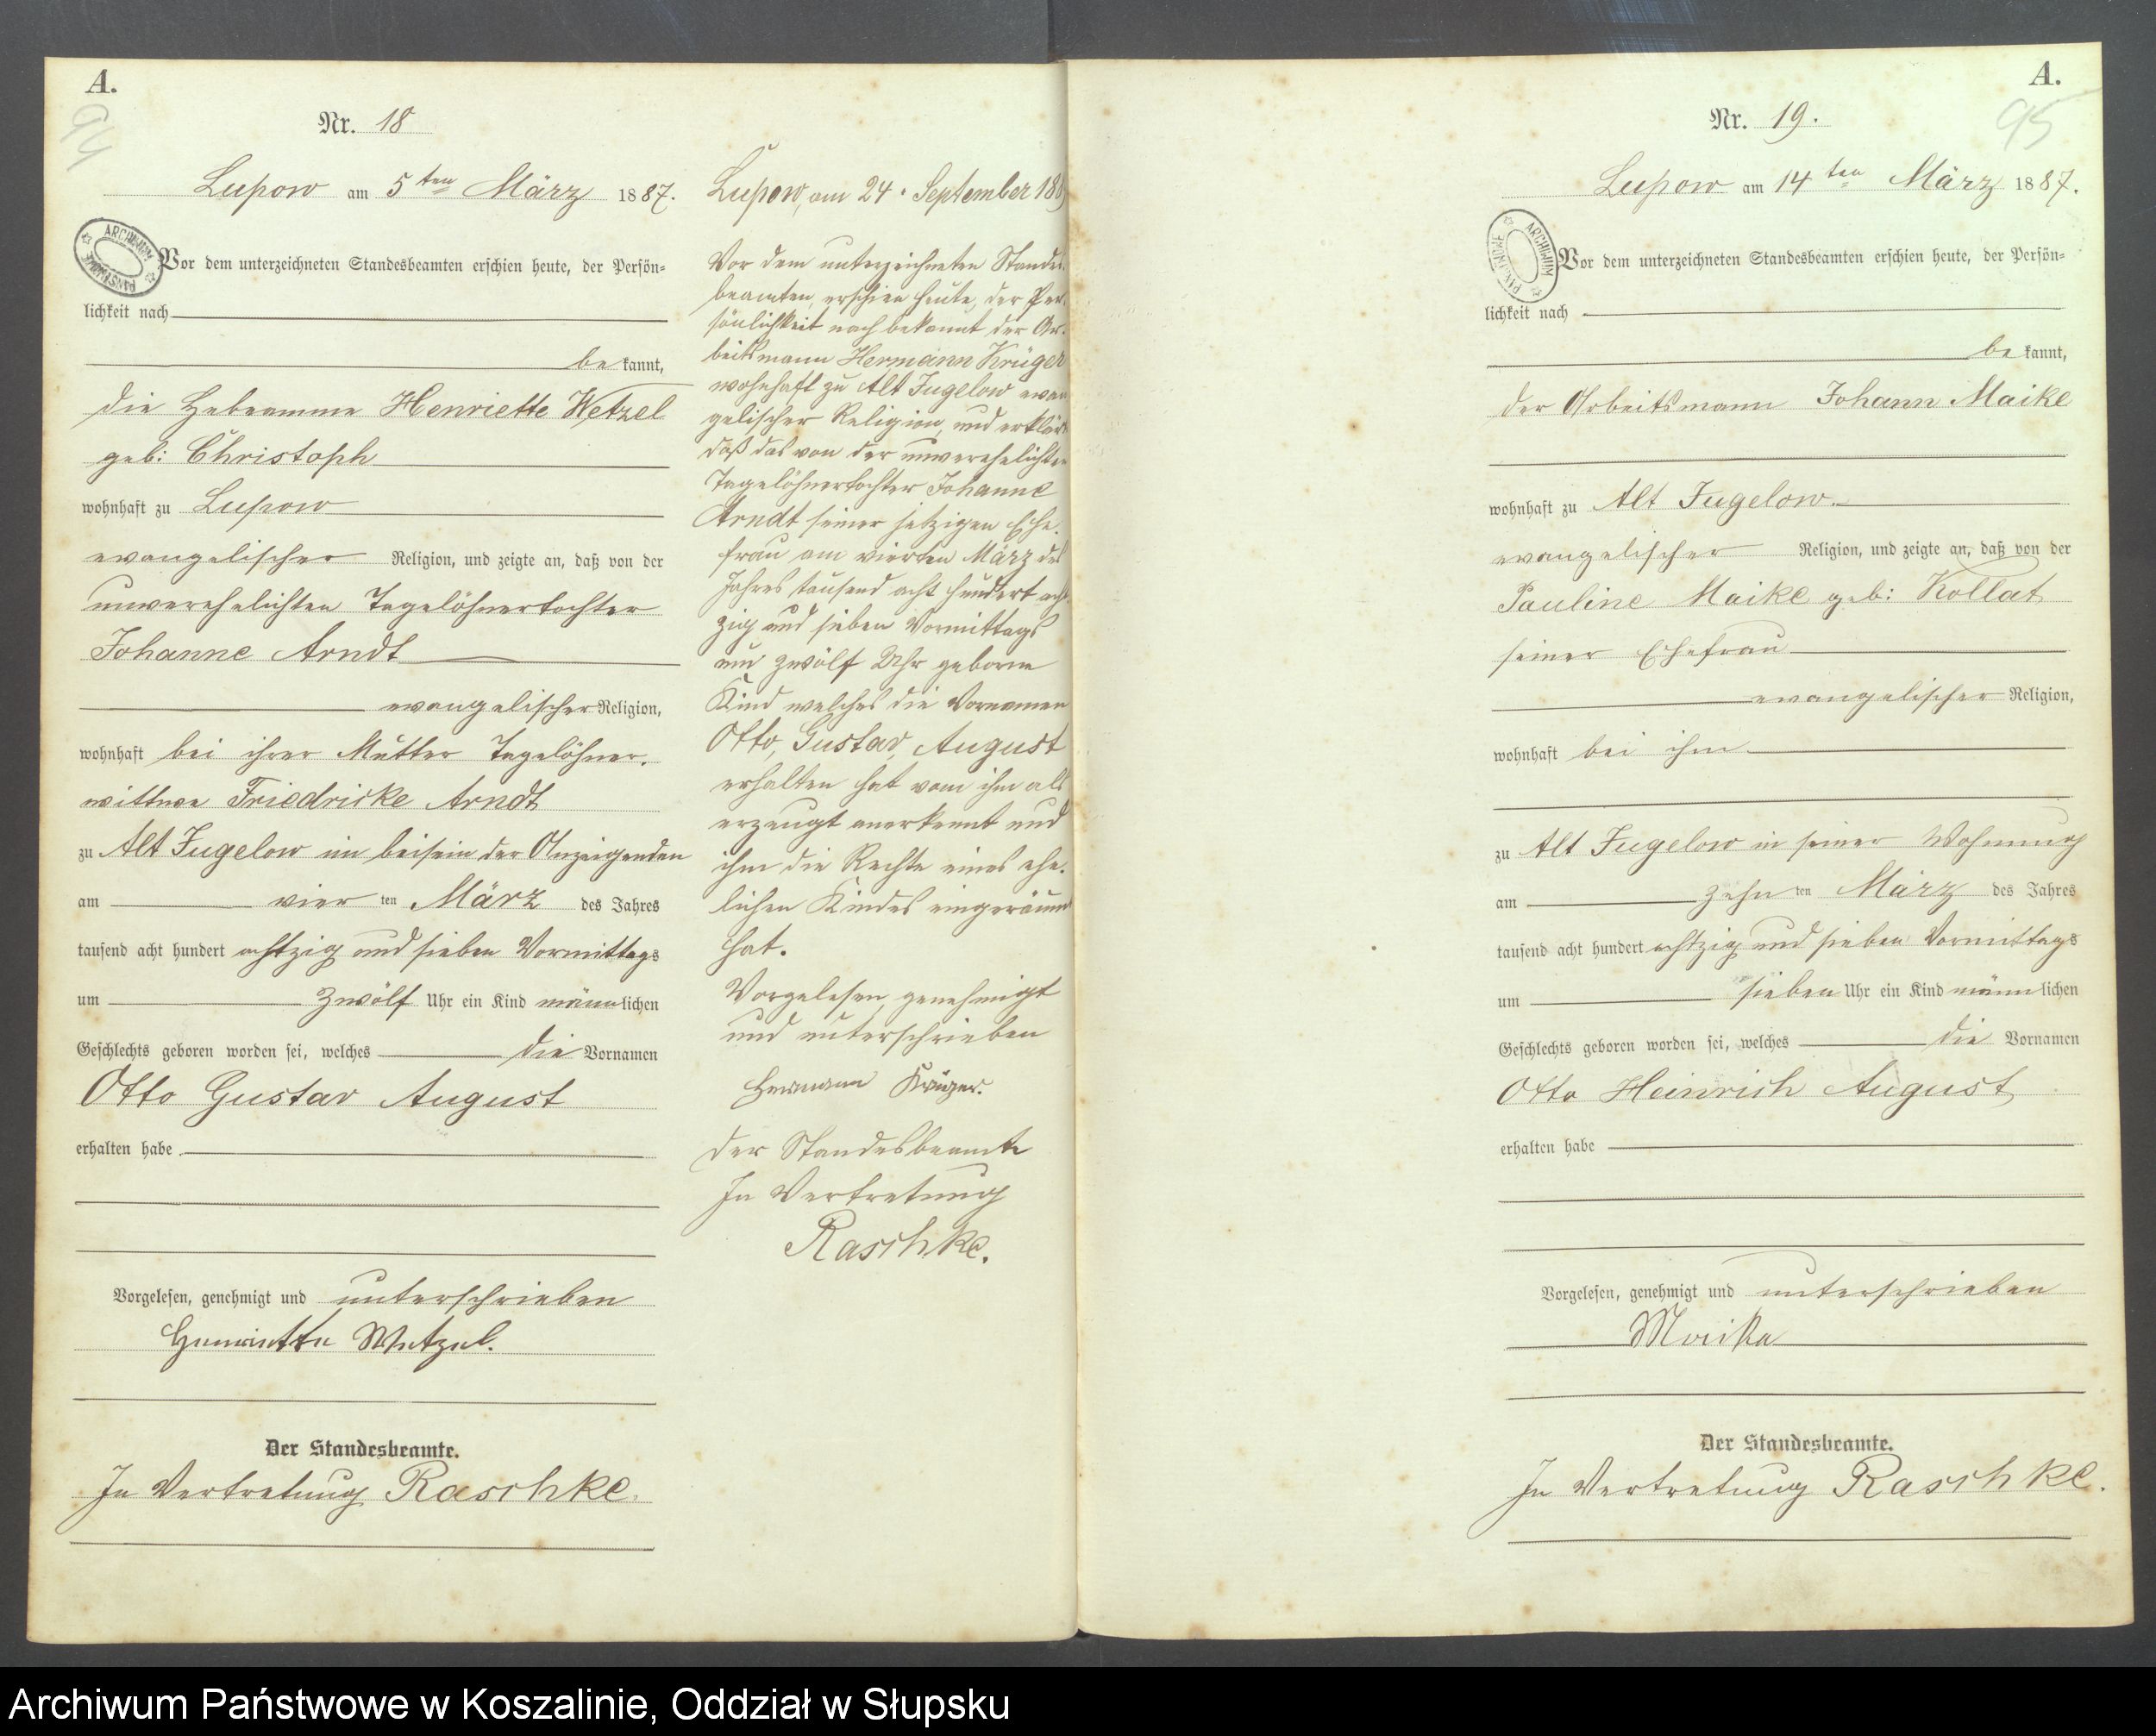 A.
94
Nr. 18
Lupow am 5ten März 1887.
Vor dem unterzeichneten Standesbeamten erschien heute, der Persön-
lichkeit nach
bekannt,
die Hebeamme Henriette Wetzel
geb: Christoph
wohnhaft zu Lupow
evangelischer Religion, und zeigte an, daß von der
unverehelichten Tagelöhnertochter
Johanne Arndt
evangelischer Religion,
wohnhaft bei ihrer Mutter Tagelöhner-
wittwe Friedricke Arndt
zu Alt Jugelow im beisein der Anzeigenden
am vierten März des Jahres
tausend acht hundert achtzig und sieben Vormittags
um Zwölf Uhr ein Kind männlichen
Geschlechts geboren worden sei, welches die Vornamen
Otto Gustav August
erhalten habe
Vorgelesen, genehmigt und unterschrieben
Henriette Wetzel.
Der Standesbeamte.
In Vertretung Raschke.
Lupow, am 24. September 188
Vor dem unterzeichneten Standes-
beamten, erschien heute, der Per-
sönlichkeit nach bekannt der Ar-
beitsmann Hermann Krüger
wohnhaft zu Alt Jugelow evan
gelischer Religion, und erklärt
daß das von der unverehelichten
Tagelöhnertochter Johanne
Arndt seiner jetzigen Ehe-
frau am vierten März des
Jahres tausend acht hundert acht-
zig und sieben Vormittags
um zwölf Uhr geborne
Kind welches die Vornamen
Otto, Gustav, August
erhalten hat vom ihm als
erzeugt anerkennt und
ihm die Rechte eines ehe-
lichen Kindes eingeräumt
hat.
Vorgelesen, genehmigt
und unterschrieben
Hermann Krüger.
Der Standesbeamte
In Vertretung
Raschke.
A.
95
Nr. 19.
Lupow am 14ten März 1887.
Vor dem unterzeichneten Standesbeamten erschien heute, der Persön-
lichkeit nach
bekannt,
der Arbeitsmann Johann Maike
wohnhaft zu Alt Jugelow.
evangelischer Religion, und zeigte an, daß von der
Pauline Maike geb: Kollat
seiner Ehefrau
evangelischer Religion,
wohnhaft bei ihm
zu Alt Jugelow in seiner Wohnung
am zehnten März des Jahres
tausend acht hundert achtzig und sieben Vormittags
um sieben Uhr ein Kind männlichen
Geschlechts geboren worden sei, welches die Vornamen
Otto Heinrich August
erhalten habe
Vorgelesen, genehmigt und unterschrieben
Maike
Der Standesbeamte.
In Vertretung Raschke.
Archiwum Państwowe w Koszalinie, Oddział w Słupsku